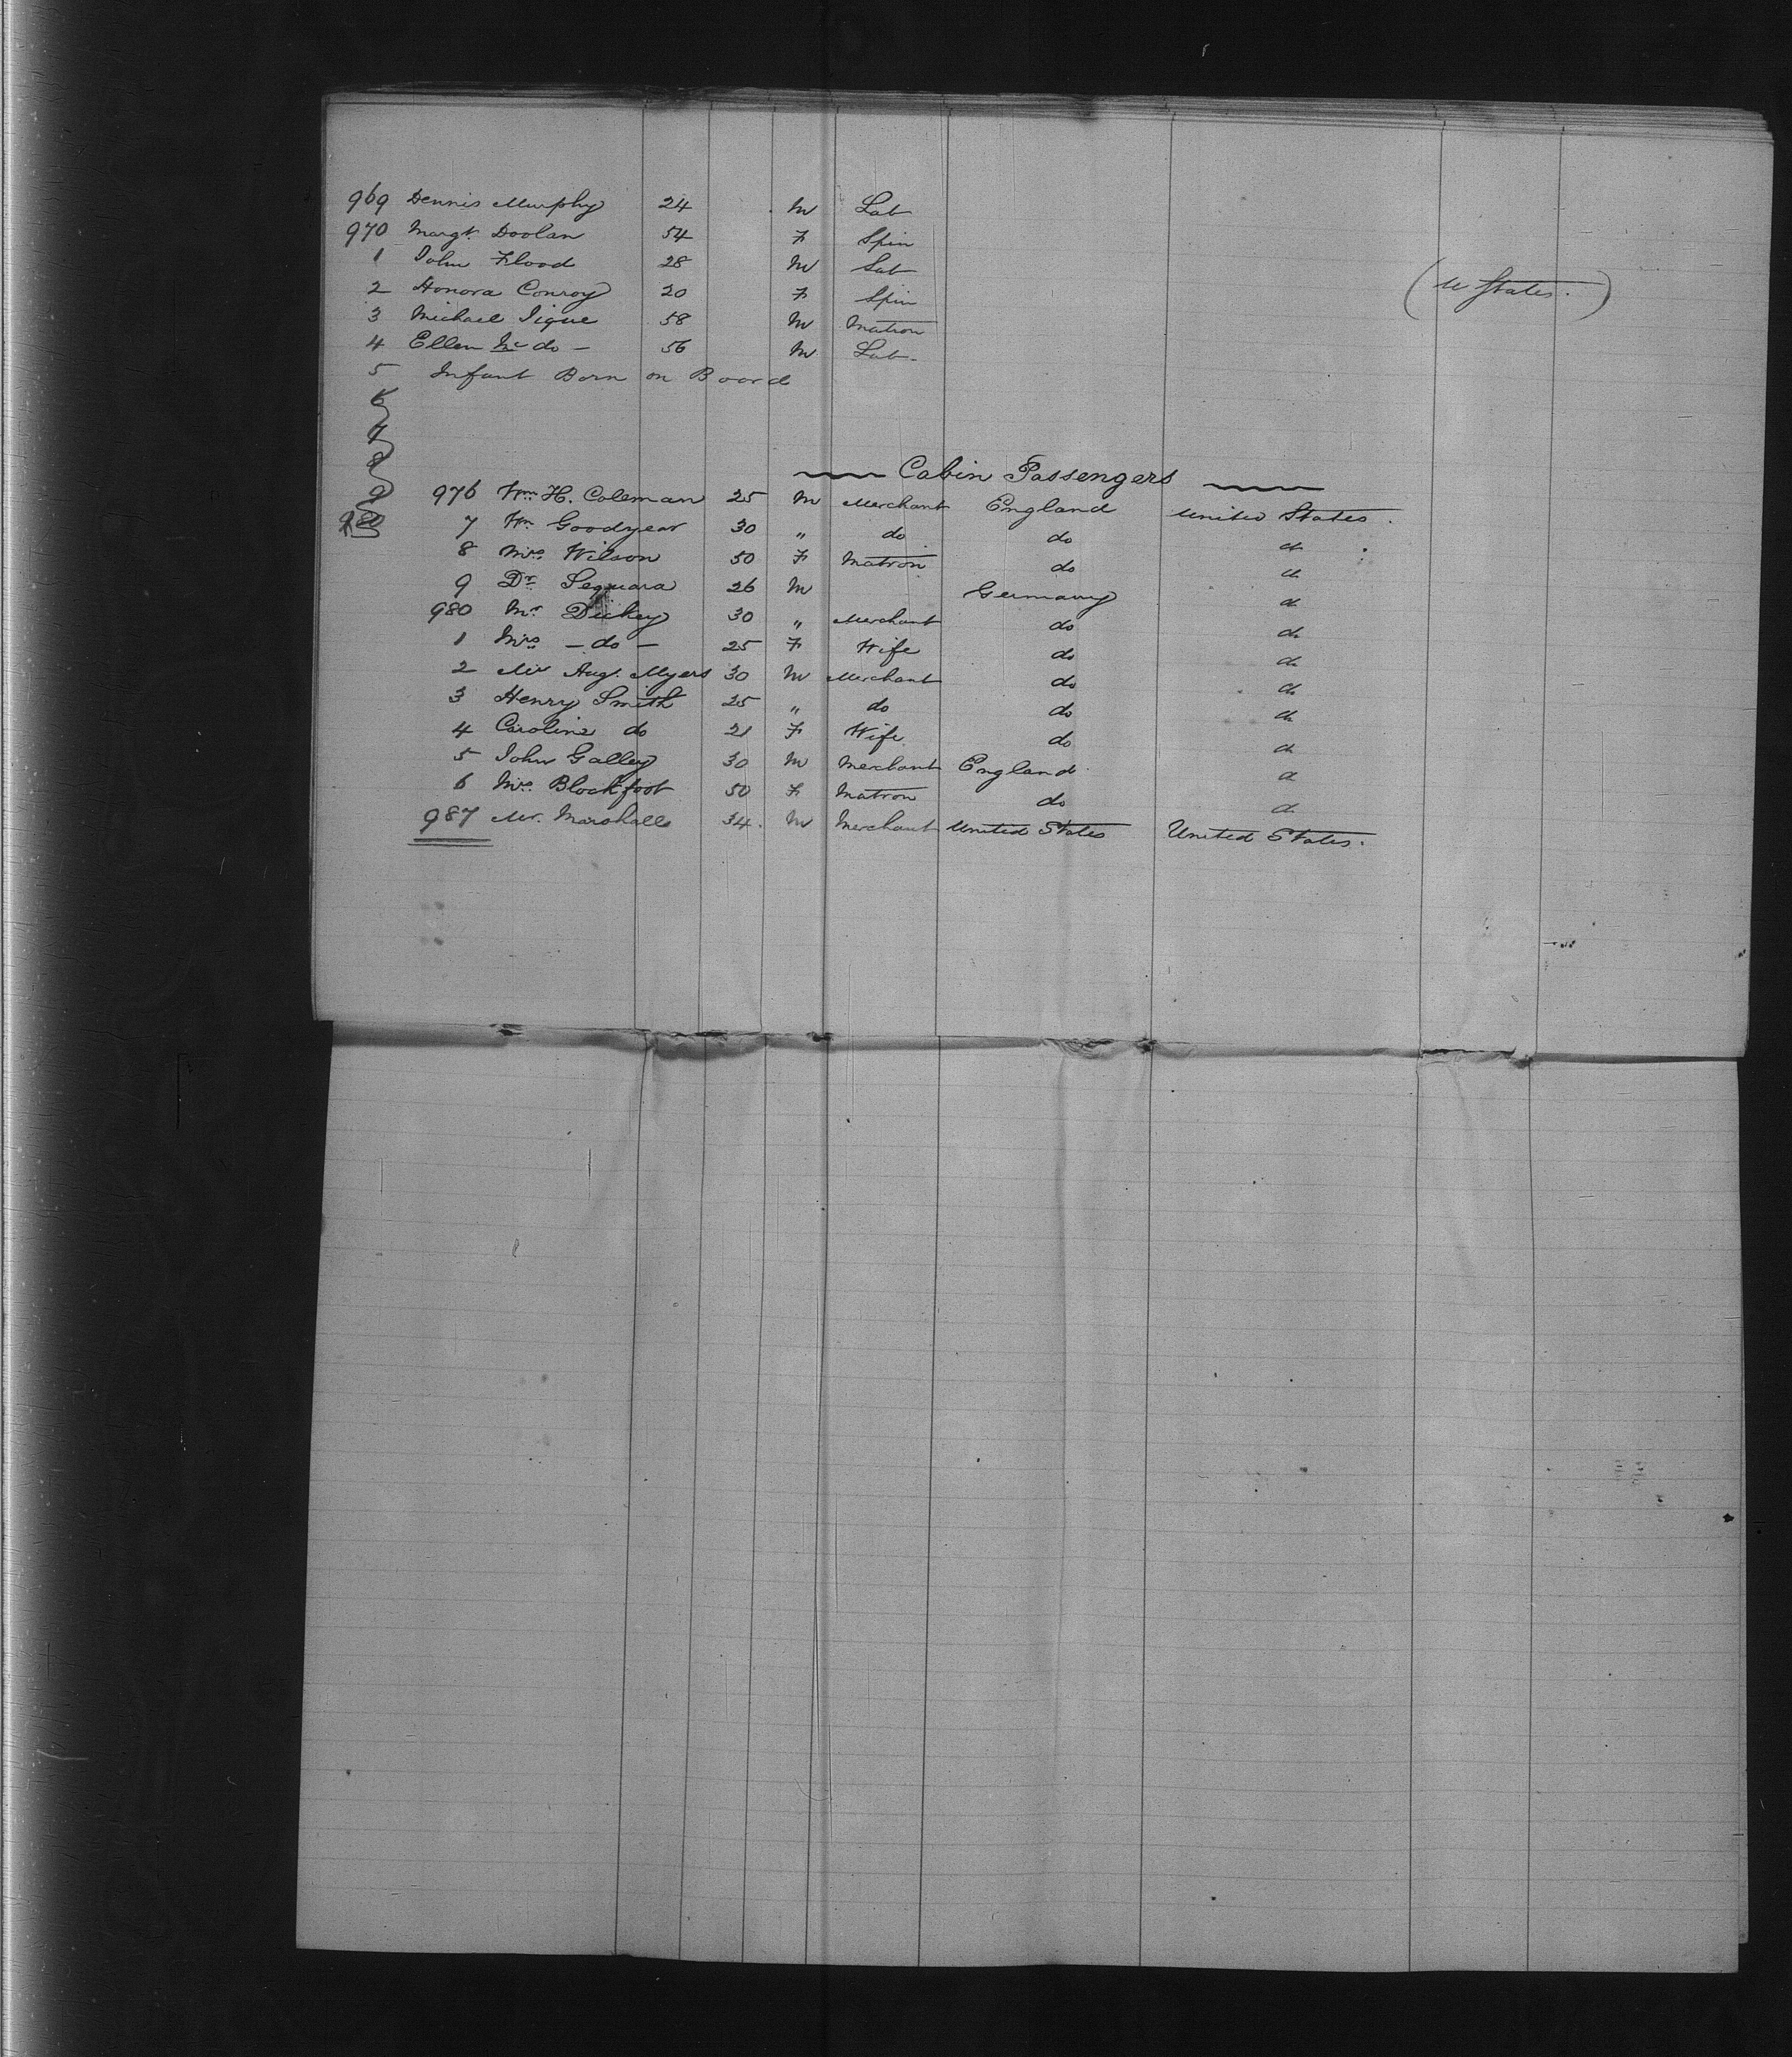 969 Dennis Murphy 24 M Lab
970 Margt. Doolan 54 F Spin
1 John Flood 28 M Lab
2 Honora Conroy 20 F Spin
(U States.)
3 Michael Tigue 58 M Matron
4 Ellen do - 56 M Lab.
5 Infant Born on Board
6
7
8
Cabin Passengers
9 976 Wm. H. Coleman 25 M Merchant England United States.
980 7 Wm Goodyear 30 " do do do
8 Mrs. Wilson 50 F Matron do do
9 Dr. Sequara 26 M Germany do
980 Mr. Dickey 30 " Merchant do do
1 Mrs - do - 25 F Wife do do
2 Mr Aug. Myers 30 M Merchant do do
3 Henry Smith 25 " do do do
4 Caroline do 21 F Wife do do
5 John Galley 30 M Merchant England do
6 Mrs. Blockfoot 50 F Matron do do
987 Mr. Marshall 34. M Merchant United States United States.